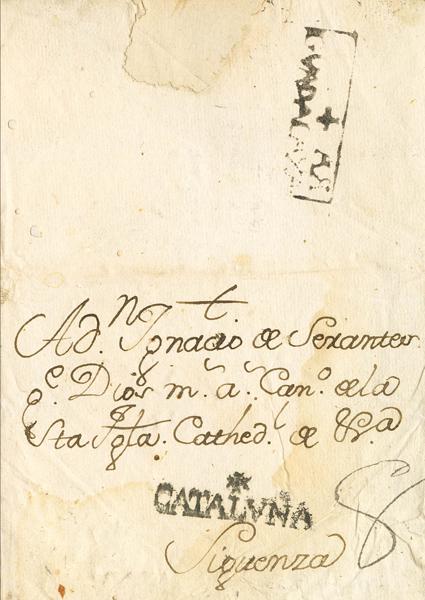 †
A dn. Ignacio de Serantes
ge. Dios ms. as. Cano. de la
Sta Igla. Cathedl. de
CATALVÑA
Siguenza